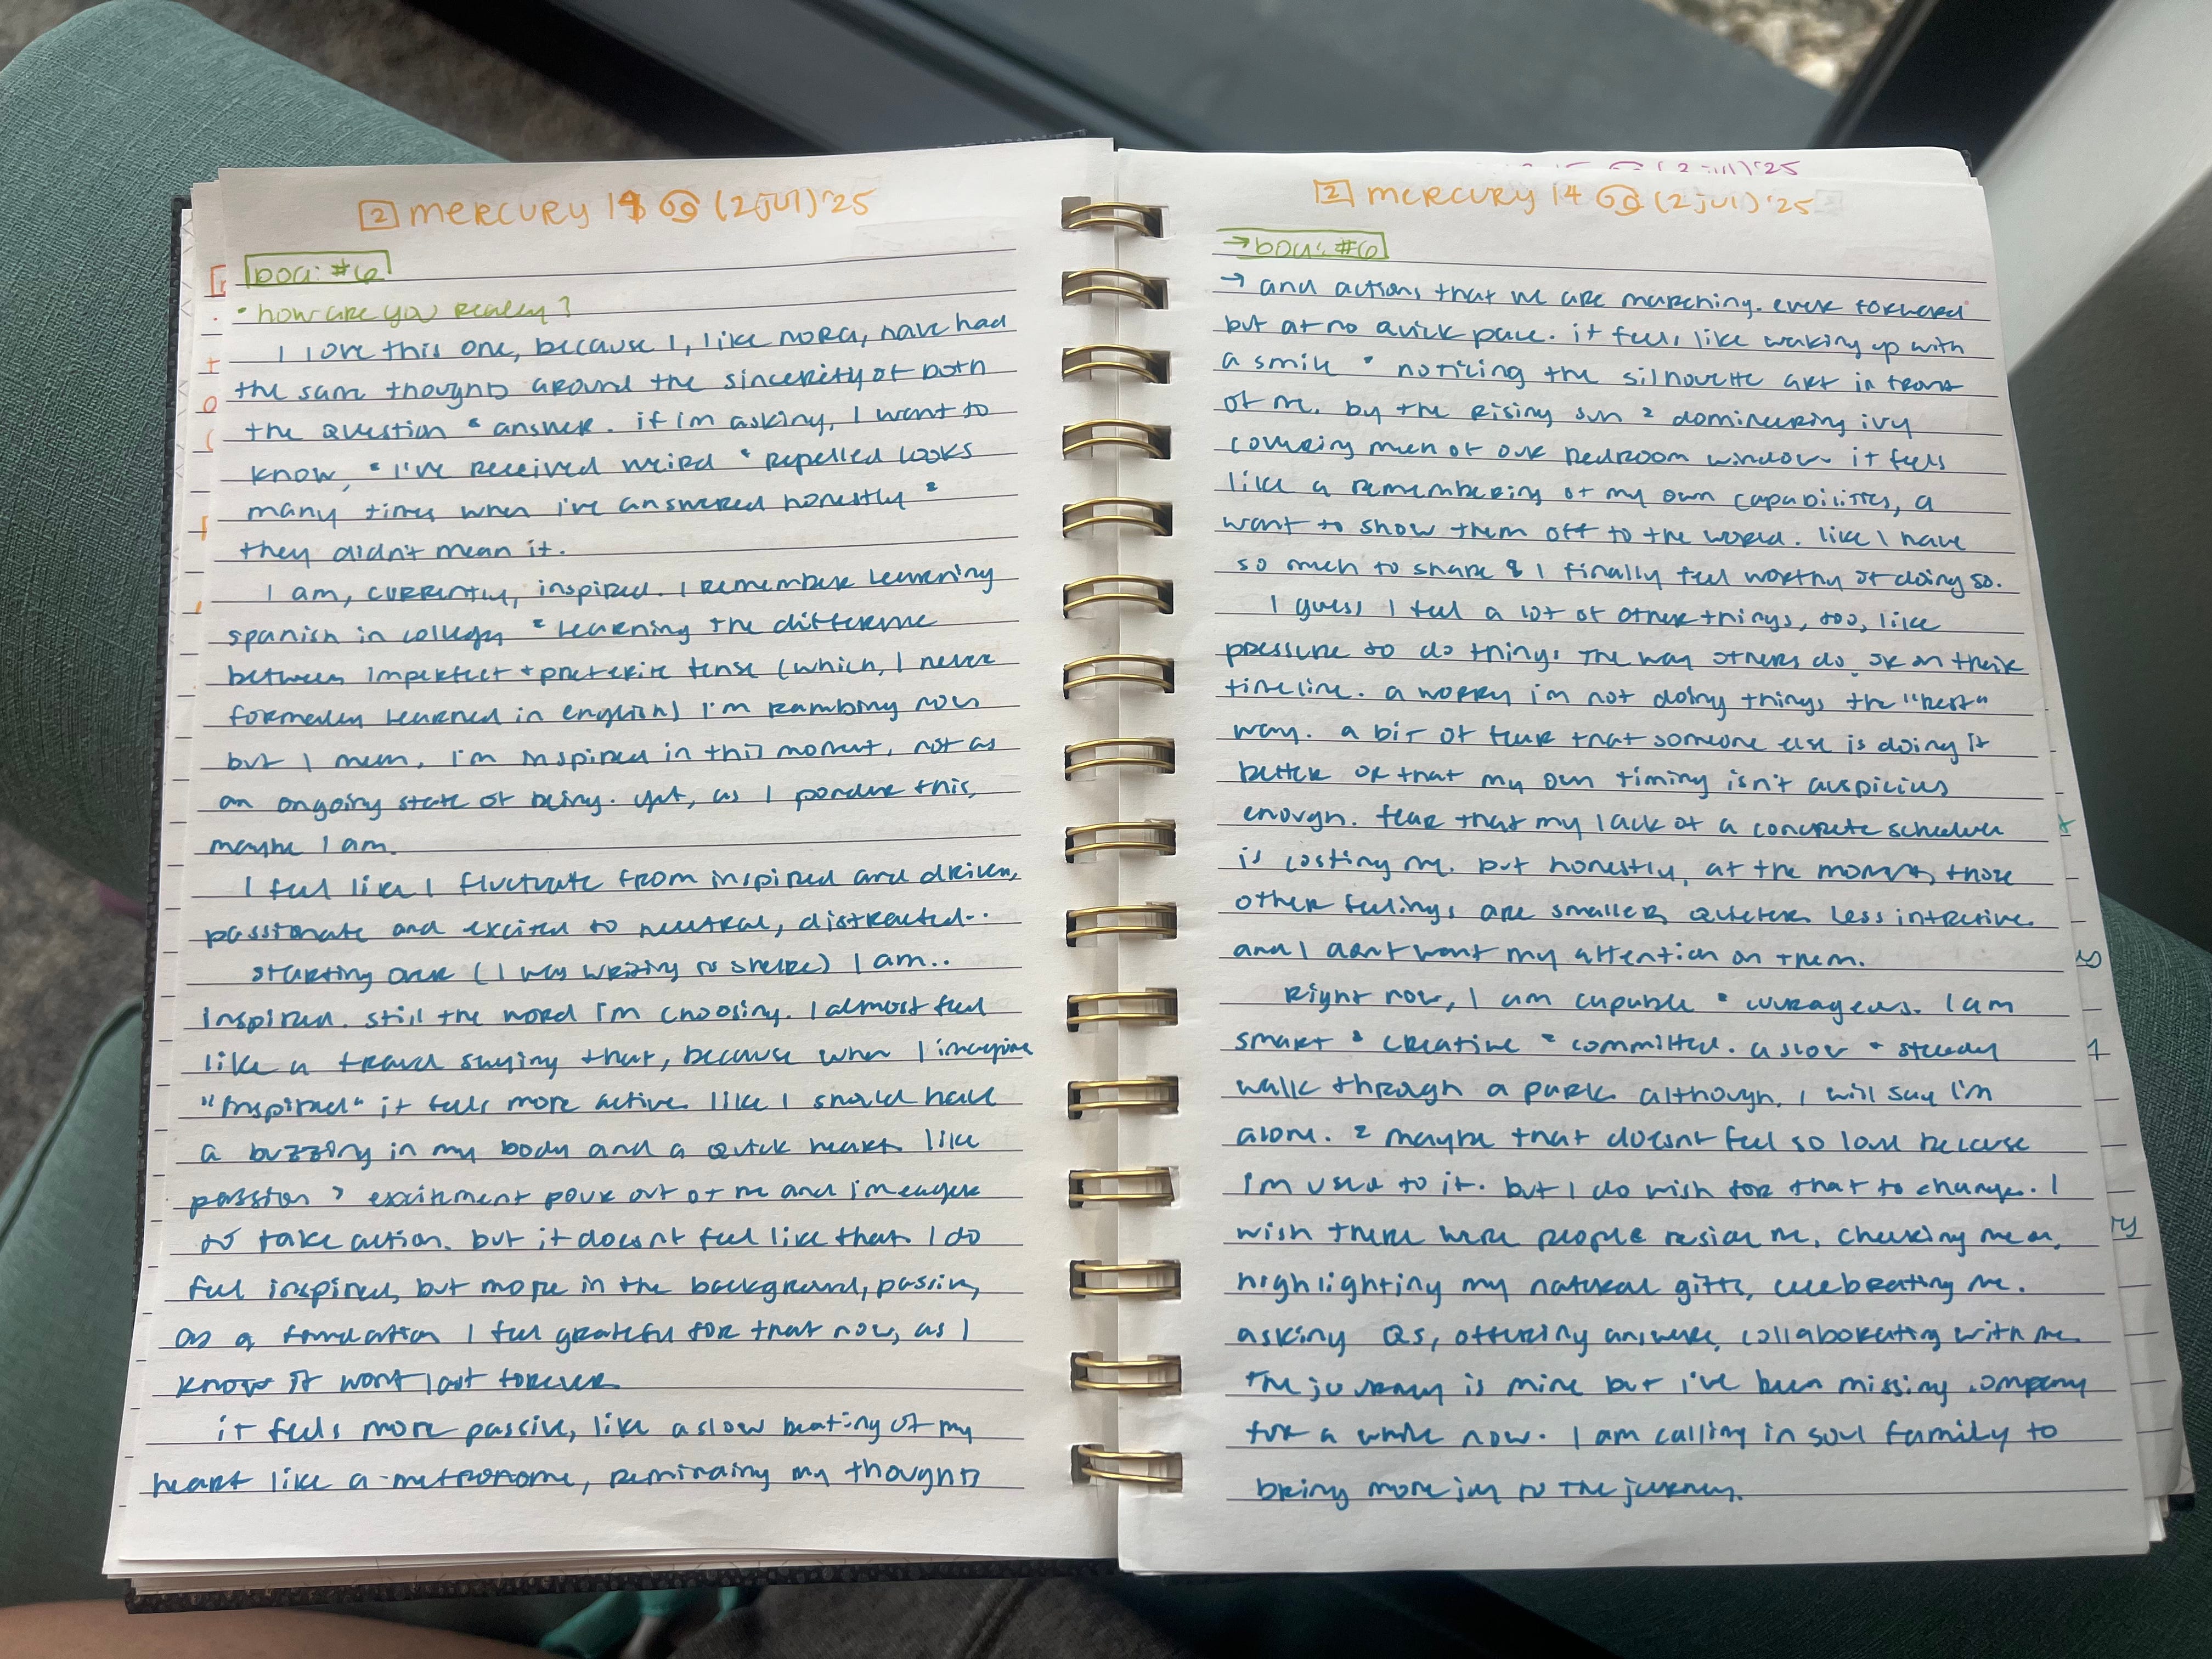 [2] mercury 14 ♋ (2jul) '25
boa: #6
• how are you really?
I love this one, because I, like nora, have had
the same thoughts around the sincerity of both
the question & answer. if i'm asking, I want to
know, & I've received weird & repelled looks
many times when i've answered honestly &
they didn't mean it.
I am, currently, inspired. I remember learning
spanish in college, & learning the difference
between imperfect + preterite tense (which, I never
formerly learned in english) I'm rambling now
but I mean, I'm inspired in this moment, not as
an ongoing state of being. yet, as I ponder this,
maybe I am.
I feel like I fluctuate from inspired and driven,
passionate and excited to neutral, distracted..
starting over (I was writing to share) I am..
inspired. still the word I'm choosing. I almost feel
like a fraud saying that, because when I imagine
"inspired" it feels more active. like I should have
a buzzing in my body and a quick heart. like
passion & excitement pour out of me and i'm eager
to take action. but it doesn't feel like that. I do
feel inspired, but more in the background, passive,
as a foundation I feel grateful for that now, as I
know it wont last forever.
it feels more passive, like a slow beating of my
heart like a metronome, reminding my thoughts
(2jul) '25
[2] mercury 14 ♋ (2jul) '25
→ boa: #6
→ and actions that we are marching. ever forward
but at no quick pace. it feels like waking up with
a smile & noticing the silhouette art in front
of me. by the rising sun & domineering ivy
covering much of our bedroom window. it feels
like a remembering of my own capabilities, a
want to show them off to the world. like I have
so much to share & I finally feel worthy of doing so.
I guess I feel a lot of other things, too, like
pressure to do things the way others do, or on their
timeline. a worry i'm not doing things the "best"
way. a bit of fear that someone else is doing it
better or that my own timing isn't auspicius
enough. fear that my lack of a concrete schedule
is costing me. but honestly, at the moment, those
other feelings are smaller, quieter, less intrusive.
and I dont want my attention on them.
Right now, I am capable & courageous. I am
smart & creative & committed. a slow & steady
walk through a park. although, I will say I'm
alone. & maybe that doesnt feel so loud because
I'm used to it. but I do wish for that to change. I
wish there were people beside me, cheering me on,
highlighting my natural gifts, celebrating me.
asking Qs, offering answers, collaborating with me.
The journey is mine but i've been missing company
for a while now. I am calling in soul family to
bring more joy to the journey.